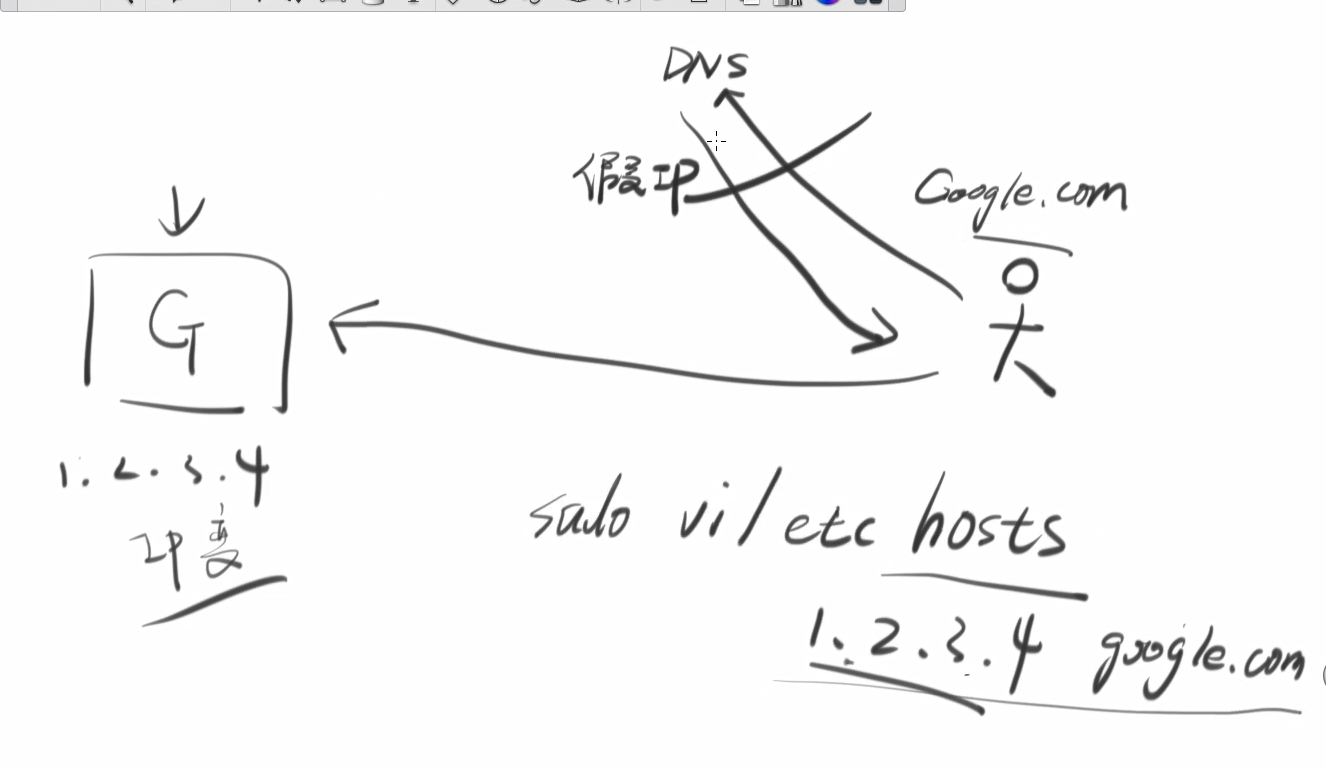 DNS
假IP
Google.com
G
1.2.3.4
IP变
sudo vi /etc hosts
1.2.3.4 google.com